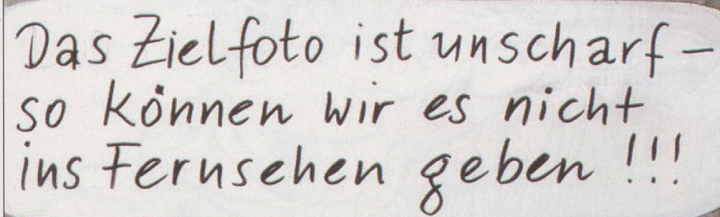 Das Zielfoto ist unscharf –
so können wir es nicht
ins Fernsehen geben !!!